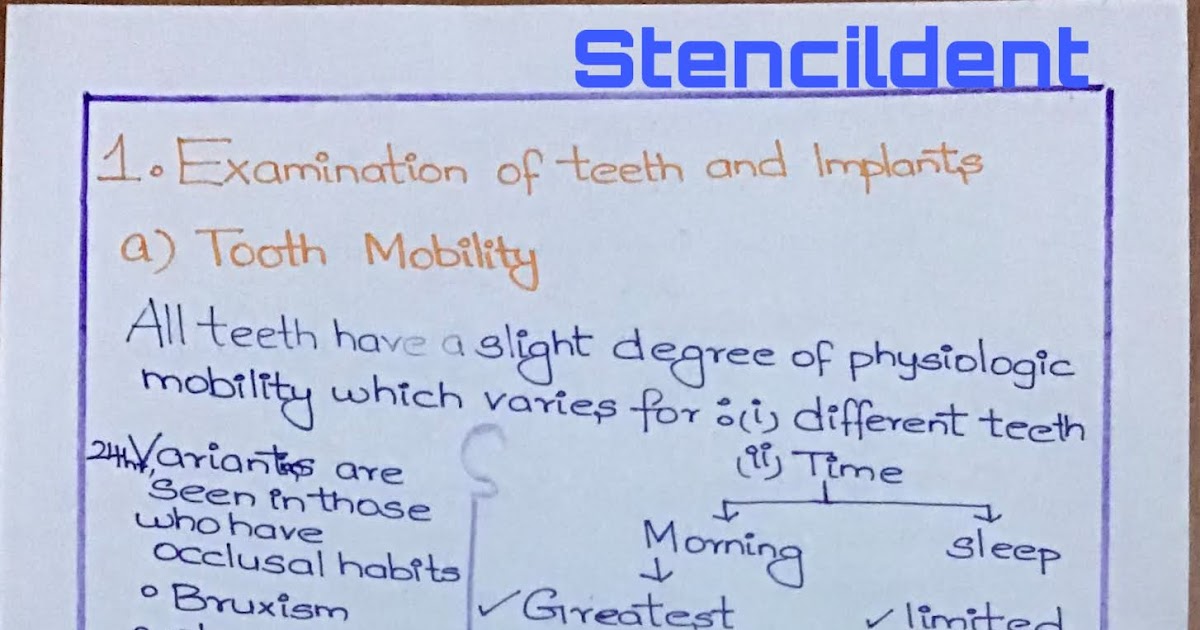 Stencildent
1. Examination of teeth and Implants
a) Tooth Mobility
All teeth have a slight degree of physiologic
mobility which varies for : (i) different teeth
(ii) Time
Morning
sleep
✓Greatest
✓limited
24th, Variants are
seen in those
who have
occlusal habits
° Bruxism